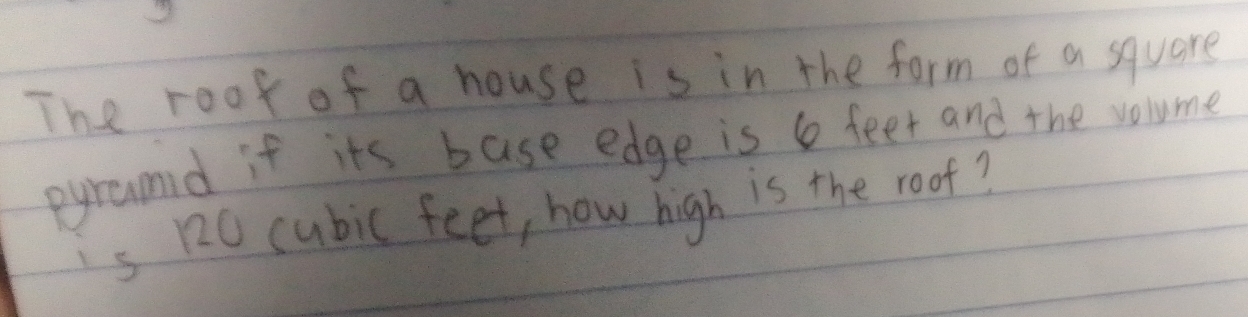 The roof of a house is in the form of a square
pyramid if its base edge is 6 feet and the volume
is 120 cubic feet, how high is the roof?